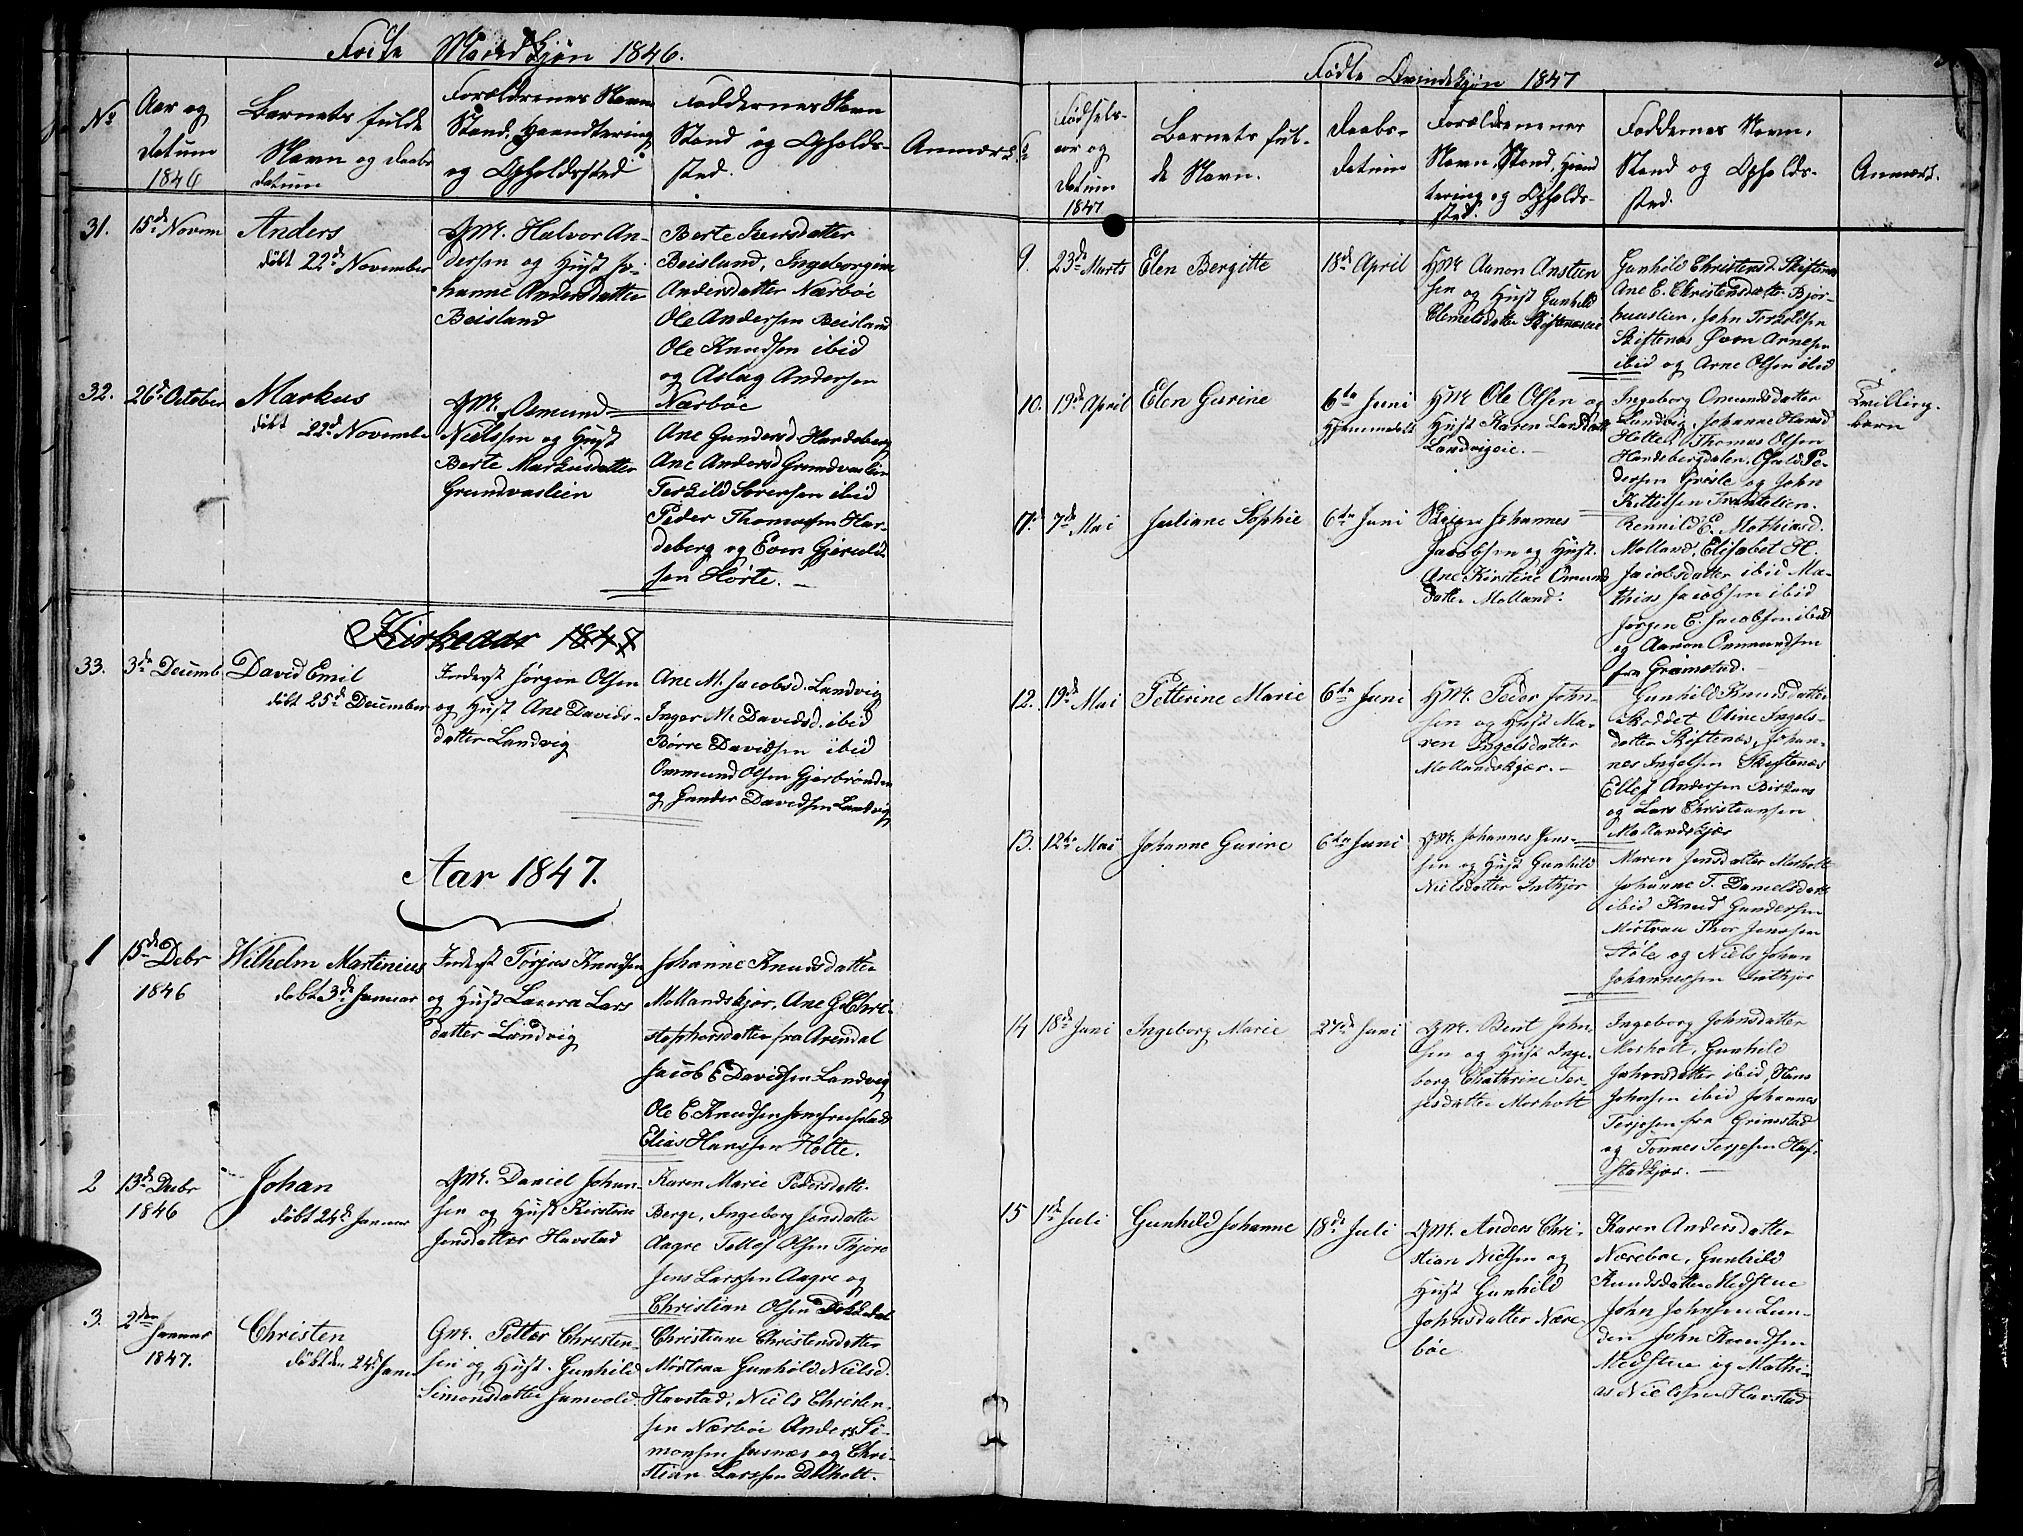 Født Mandkjøn 1846.
No
Aar og
Datum
1846
Barnets fulde
Navn og Daabs
datum
Forældrenes Navn
Stand, Haandtering
og Opholdssted
Faddernes Navn
Stand og Opholds-
sted.
Anmærk
31.
15de Novem
Anders
døbt 22de November
Gmd. Halvor An-
dersen og Hust Jo-
hanne Andersdatter
Beisland
Berte Larsdatter
Beisland, Ingeborgine
Andersdatter Nærbøe
Ole Andersen Beisland
Ole Knudsen ibid
og Aslag Andersen
Nærbøe
32.
26de October
Markus
døbt 22de Novembe
Gmd. Osmund
Nielssen og Hust
Berte Markusdatter
Grundvaslien
Ane Gundersd Hardeberg
Ane Andersd Grundvaslien
Terkild Sørensen ibid
Peder Thomassen Har-
deberg og Even Gjeruld-
sen Hørte.
Kirkeaar 1847
33.
3de Decemb
David Emil
døbt 25de December
Inderst Jørgen Olsen
og Hust Ane Davids-
datter Landvig
Ane M. Jacobsd. Landvig
Inger M. Davidsd. ibid
Børre Davidsen ibid
Ommund Olsen Gjærbrønden
og Gunder Davidsen Landvig
Aar 1847.
1
15de Debr
1846
Wilhelm Martinius
døbt 3de Januar
Inderst Tørjus Knudsen
og Hust Laura Lars
datter Landvig
Johanne Knudsdatter
Mollandskjær, Ane G. Chri-
stophersdatter fra Arendal
Jacob E Davidsen Landvig
Ole E. Knudsen Jomfruestad
Elias Hanssen Holte.
2
13de Decbr
1846
Johan
døbt 24de Januar
Gmd. Daniel Johan-
sen og Hust Kirstine
Jensdatter Havstad
Karen Marie Pedersdatter
Berge, Ingeborg Jensdatter
Aagre Tellef Olsen Thjøre
Jens Larssen Aagre og
Christian Olsen Dokkedal
3.
2den
Januar
1847.
Christen
døbt den 24de Janu
Gmd. Petter Christen-
sen og Hust. Gunhild
Simonsdatter Jamvold.
Christiane Christensdatter
Mørtraa Gunhild Nielsd.
Havstad, Niels Christen-
sen Nærbøe Anders Si-
monsen Jusnæs og Chri-
stian Larssen Dolholt.
Fødte Qvindekjøn 1847
Fødsels-
aar og
Datum
1847
Barnets ful-
de Navn.
Daabs-
datum
Forældrenenes
Navn, Stand, Haand
tering og Opholds-
sted.
Faddernes Navn,
Stand og Opholds-
sted.
Anmærk.
9.
23de Marts
Elen Bergitte
18de April
Gmd Aanon Ansten
sen og Hust Gunhild
Clemetsdatter Skiftenæsei
Gunhild Christensd. Skiftenæs
Ane E. Christensdatter Bjør-
huuslien, John Terkeldsen
Skiftenæs Øven Arnesen
ibid og Arne Olsen ibid
10.
19de April
Elen Gurine
6te Juni
Hjemmedøbt
Gmd Ole Olsen og
Hust Karen Larsdatter
Landvigeie.
Ingeborg Omundsdatter
Landvig, Johanne Hansd
Holte, Thomas Olsen
Hardebergdalen, Osuld Pe-
dersen Groste og John
Kittilsen
Tvilling-
barn
7de Mai
Juliane Sophie
6te Juni
Johannes
Jacobsen og Hust.
Ane Kirstine Omund
datter Molland.
Ronnild E. Mathiasd.
Molland, Elisabet H.
Jacobsdatter ibid Ma-
thias Jacobsen ibid
Jørgen E. Jacobsen ibid
og Aanon Ommundsen
fra Grimstad.
12.
19de Mai
Petterine Marie
6te Juni
Gmd. Peder John-
sen og Hust Ma-
ren Ingelsdatter
Mollandskjær.
Gunhild Knudsdatter
Skodet Oline Ingels-
datter Skiftenæs, Johan-
nes Ingelsen Skiftenæs
Ellef Andersen Birkenes
og Lars Christiansen
Mollandskjær
13.
12te Mai
Johanne Gurine
6te Juni
Gmd. Johannes Jens-
sen og Hust Gunhild
Nielsdatter Intkjør
Maren Jensdatter Morholt
Johanne T. Danielsdatter
ibid Knud Gundersen
Mørtraa Thor Jenssen
Støle og Niels Johan
Johannessen Intkjør
14
18de Juni
Ingeborg Marie
27de Juni
Gmd. Bent John
sen og Hust Inge-
borg Chathrine Ter-
jesdatter Morholt
Ingeborg Johnsdatter
Morholt, Gunhild
Johnsdatter ibid, Hans
Johnsen ibid Johannes
Terjesen fra Grimstad
og Tønnes Terjesen Haf-
stadkjær.
15
1de Juli
Gunhild Johanne
18de Juli
Gmd. Anders Chri-
stian Nielsen og
Hust Gunhild
Johnsdatter Nære-
bøe
Karen Andersdatter
Nærebøe, Gunhild
Knudsdatter Medstue
John Johnsen Lun-
den John Knudsen
Medstue og Mathi-
as Nielsen Havstad